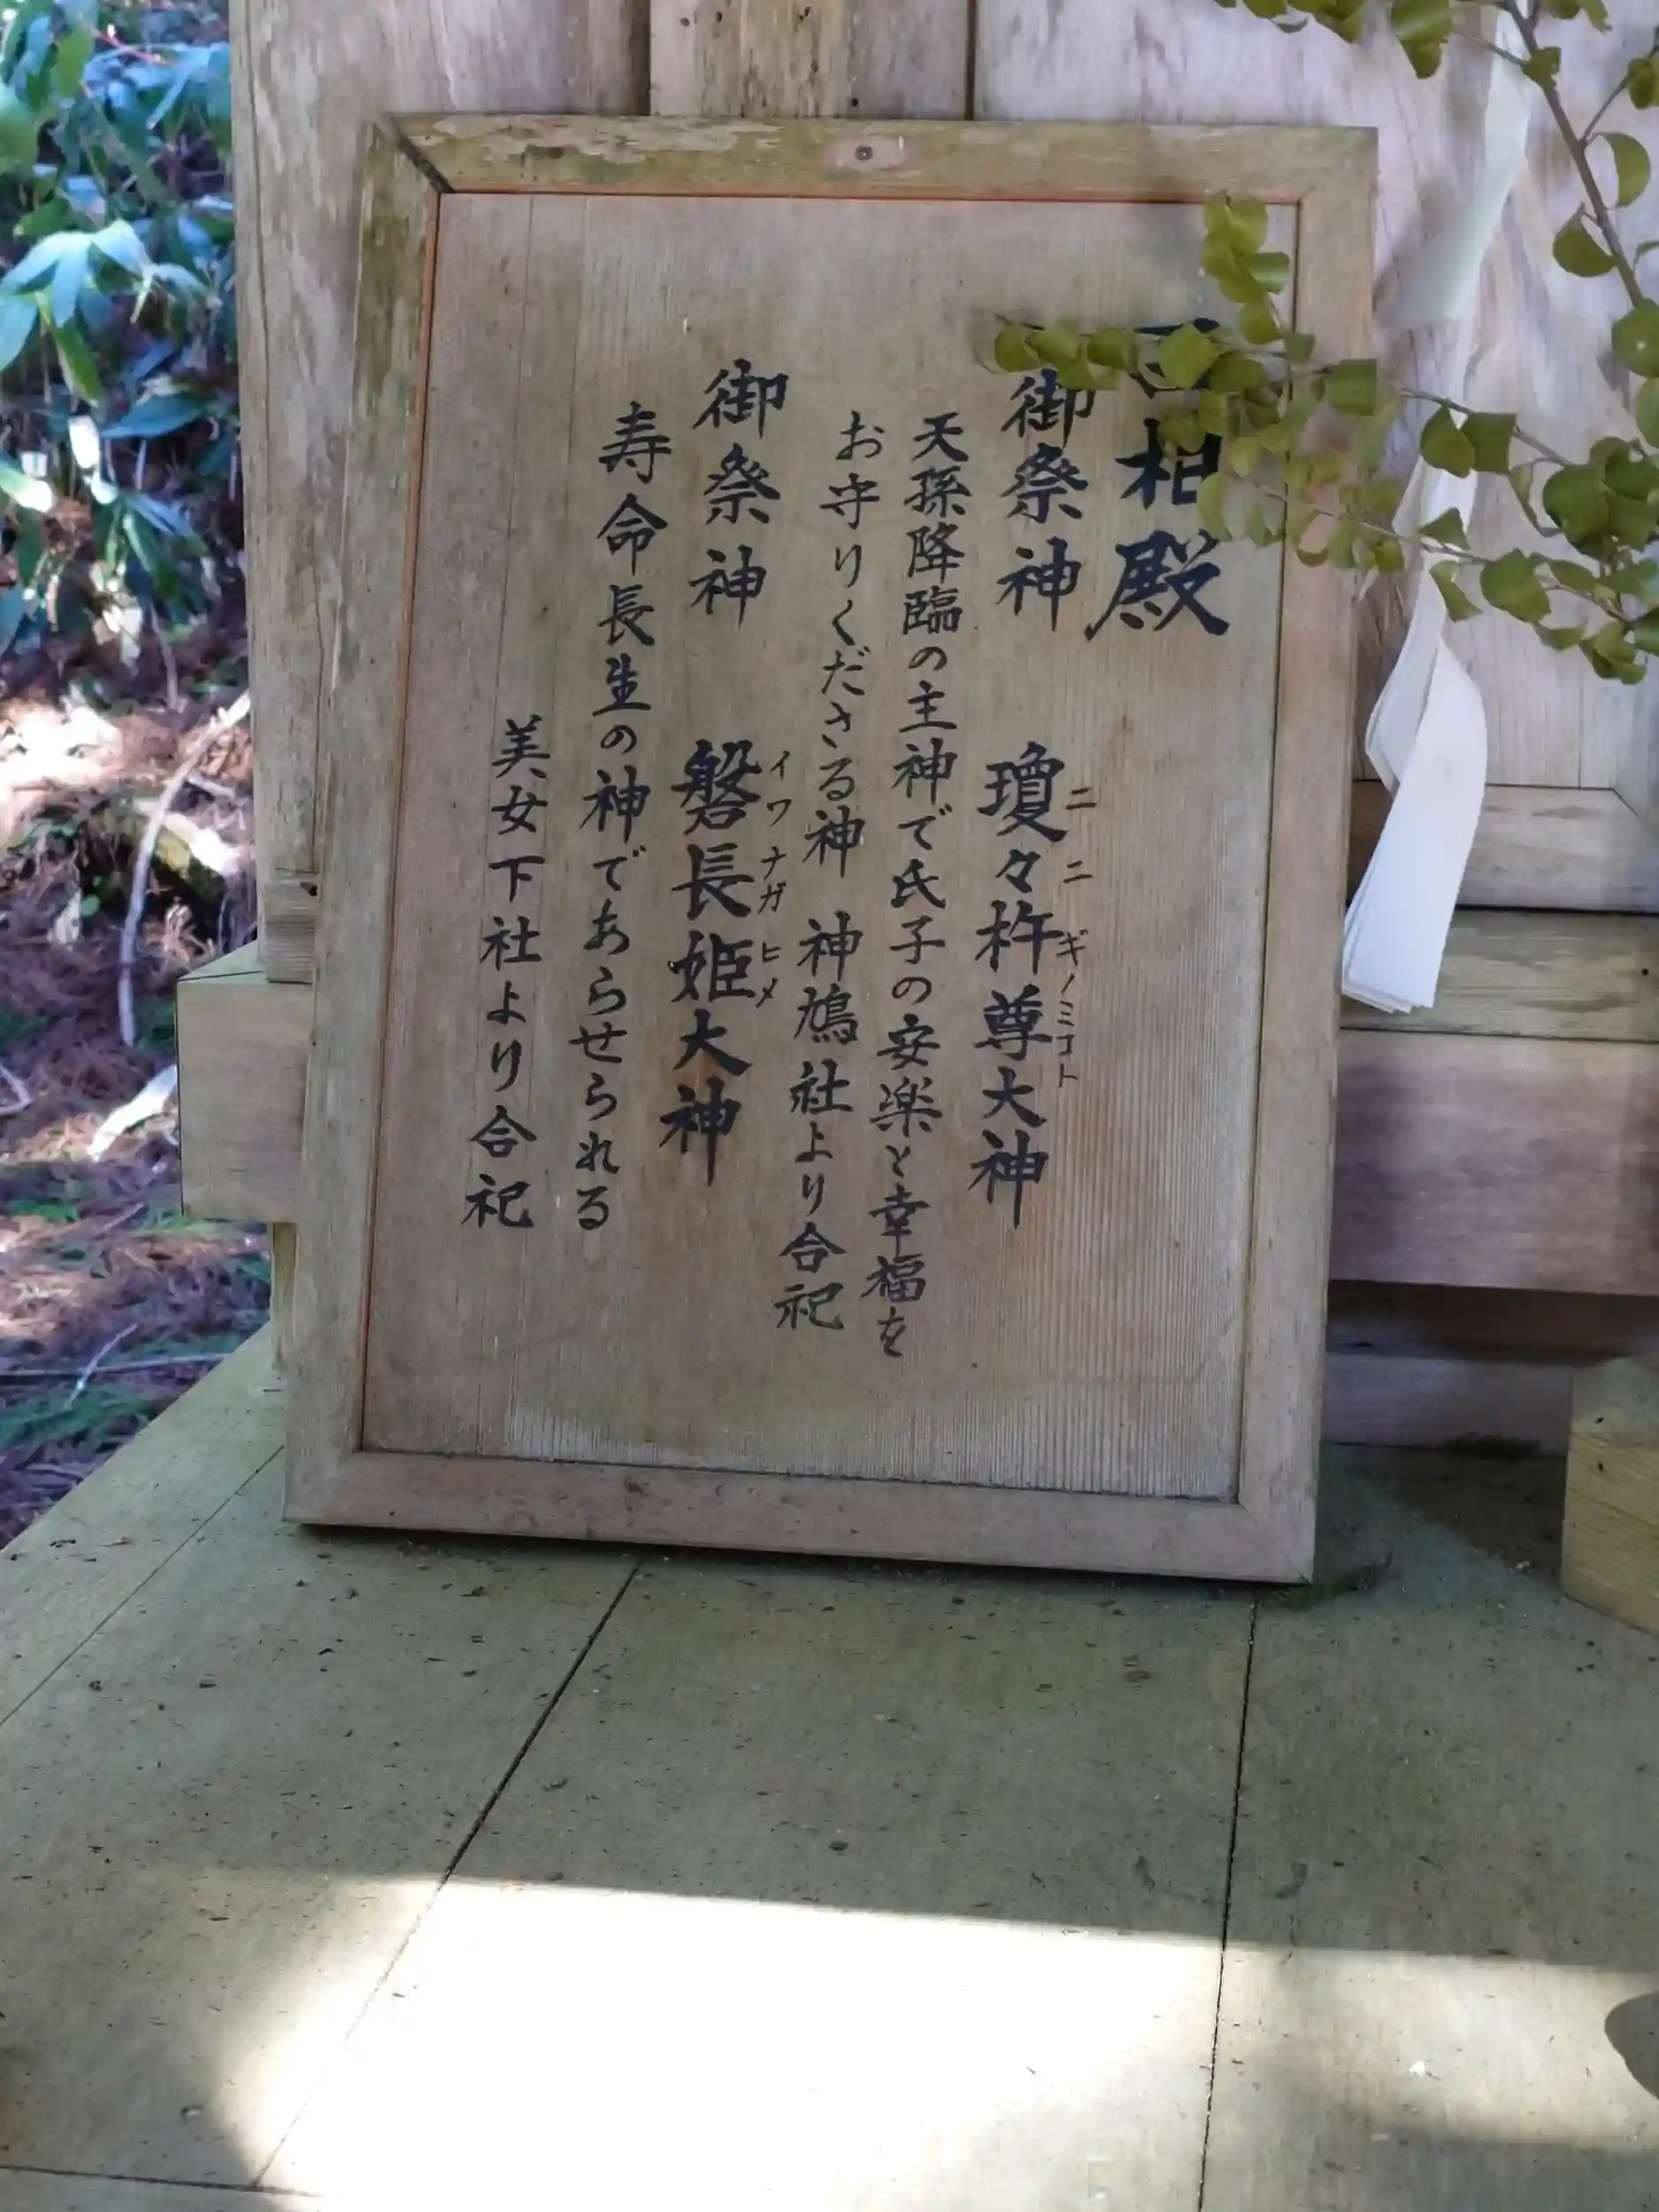 相殿
御祭神 瓊々杵尊大神
ニニギノミコト
天孫降臨の主神で氏子の安楽と幸福を
お守りくださる神 神鳩社より合祀
御祭神 磐長姫大神
イワナガヒメ
寿命長生の神であらせられる
美女下社より合祀